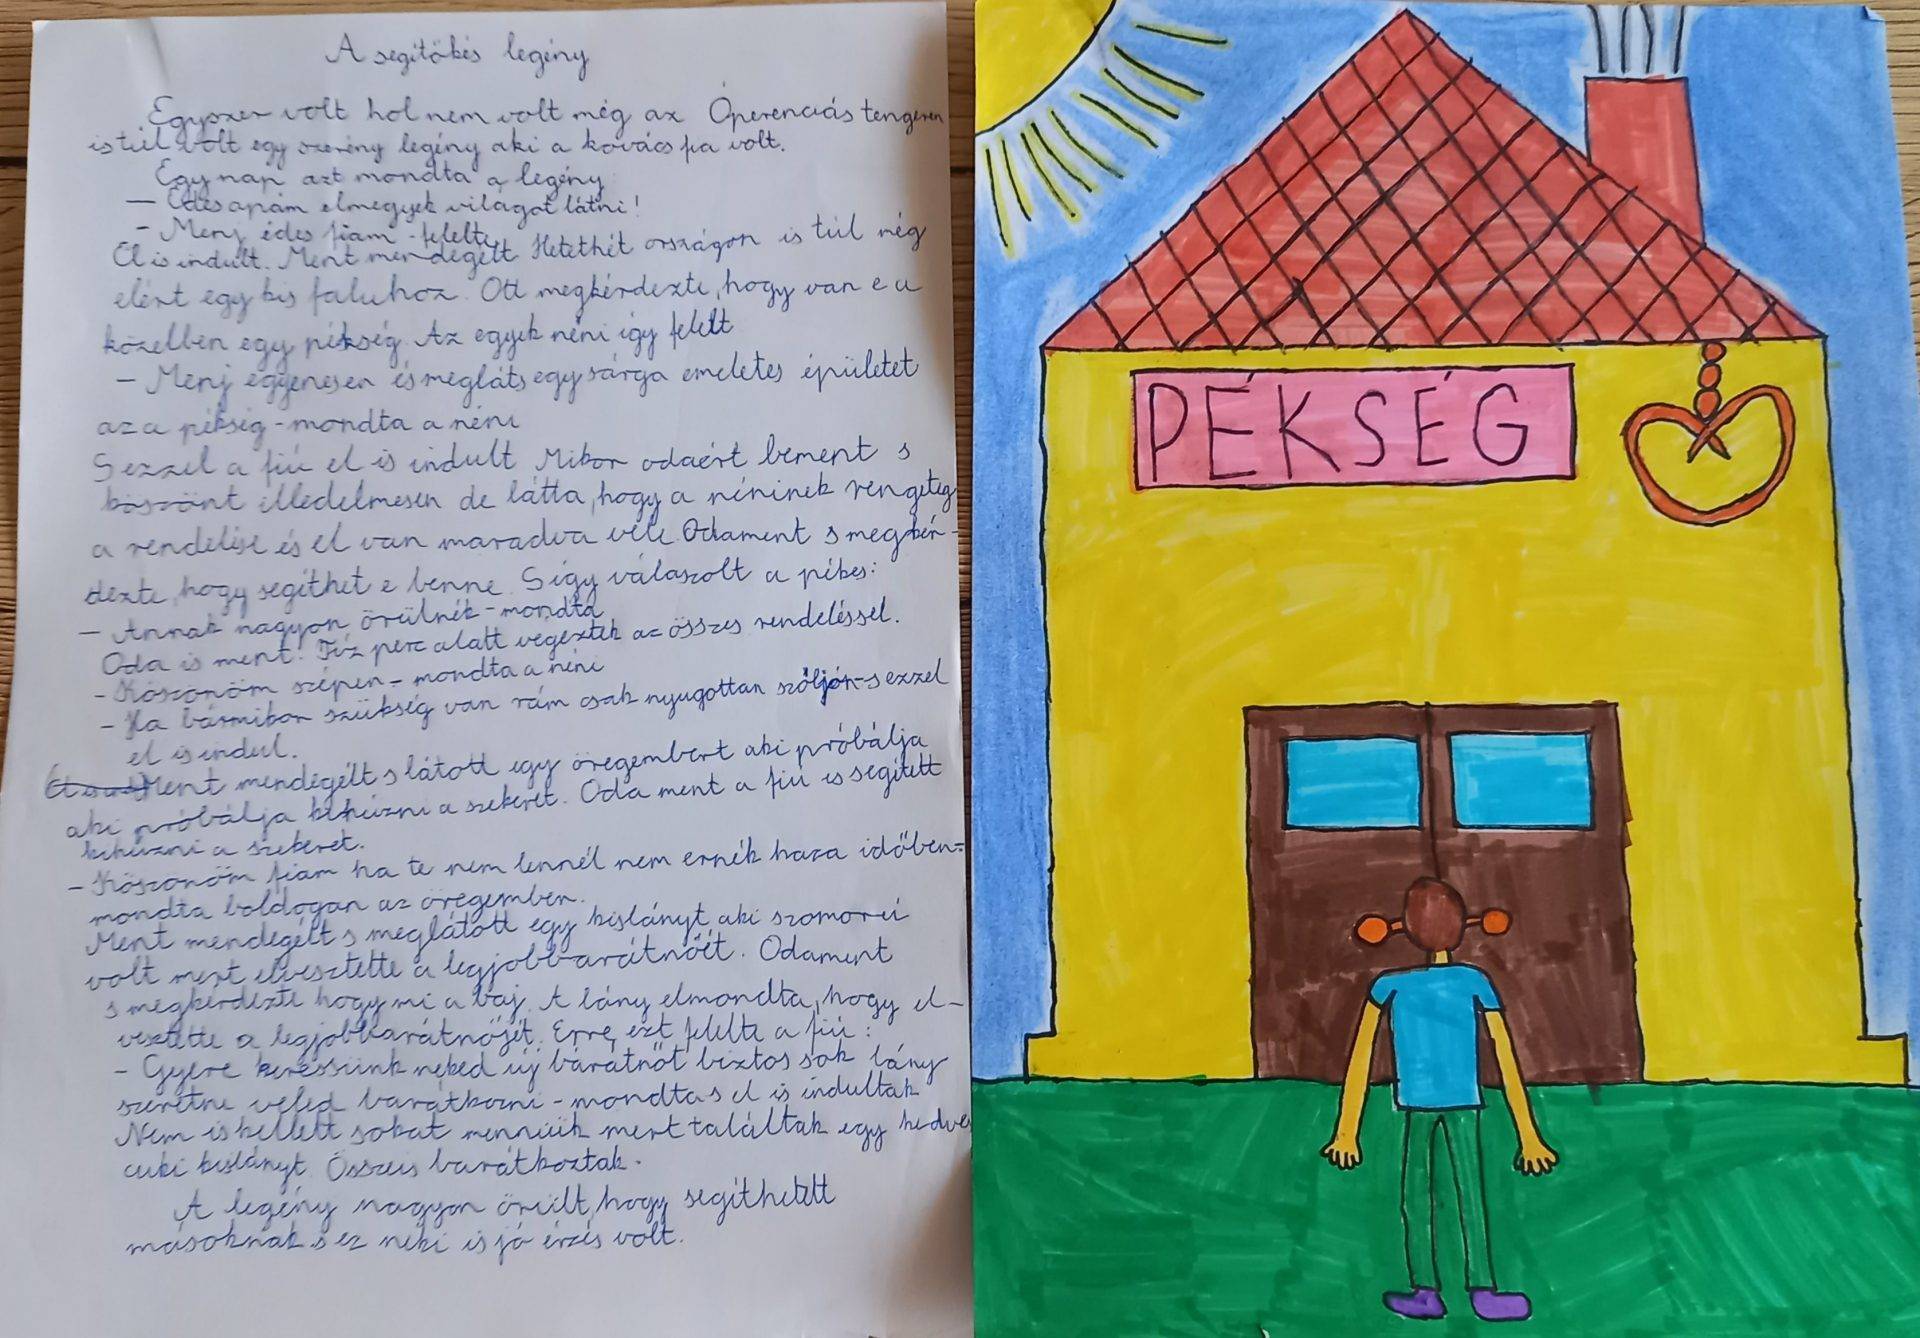 A segítőkés legény
Egyszer volt hol nem volt még az Óperenciás tengeren
is túl volt egy szerény legény aki a kovács fia volt.
Egy nap azt mondta a legény
— Édes apám elmegyek világot látni!
- Menj édes fiam - felelte
El is indult. Ment mendegélt Hetethét országon is túl még
elért egy kis faluhoz. Ott megkérdezte, hogy van e a
közelben egy pékség. Az egyik néni így felelt
— Menj egyenesen és meglátsegy sárga emeletes épületet
az a pékség - mondta a néni
S ezzel a fiú el is indult Mikor odaért bement s
köszönt illedelmesen de látta, hogy a néninek rengeteg
a rendelése és el van maradva vele. Odament s megkér-
dezte, hogy segíthet e benne. S így válaszolt a pékes:
— Annak nagyon örülnék - mondta
Oda is ment. Tíz perc alatt végeztek az összes rendeléssel.
- Köszönöm szépen - mondta a néni
- Ha bármikor szükség van rám csak nyugottan szóljon - s ezzel
el is indul.
Ment mendegélt s látott egy öregembert aki próbálja
aki próbálja kihúzni a szekeret. Oda ment a fiú is segített
kihúzni a szekeret.
- Köszönöm fiam ha te nem lennél nem ernék haza időben -
mondta boldogan az öregember.
Ment mendegélt s meglátott egy kislányt aki szomorú
volt mert elvesztette a legjobbarátnőét. Odament
s megkérdezte hogy mi a baj. A lány elmondta, hogy el-
vesztette a legjobbarátnőjét. Erre ezt felelte a fiú:
- Gyere keressünk neked új barátnőt biztos sok lány
szeretne veled barátkozni - mondta s el is indultak
Nem is kellett sokat menniük mert találtak egy kedves
cuki kislányt. Össze is barátkoztak.
A legény nagyon örült, hogy segíthetett
másoknak s ez néki is jó érzés volt.
PÉKSÉG